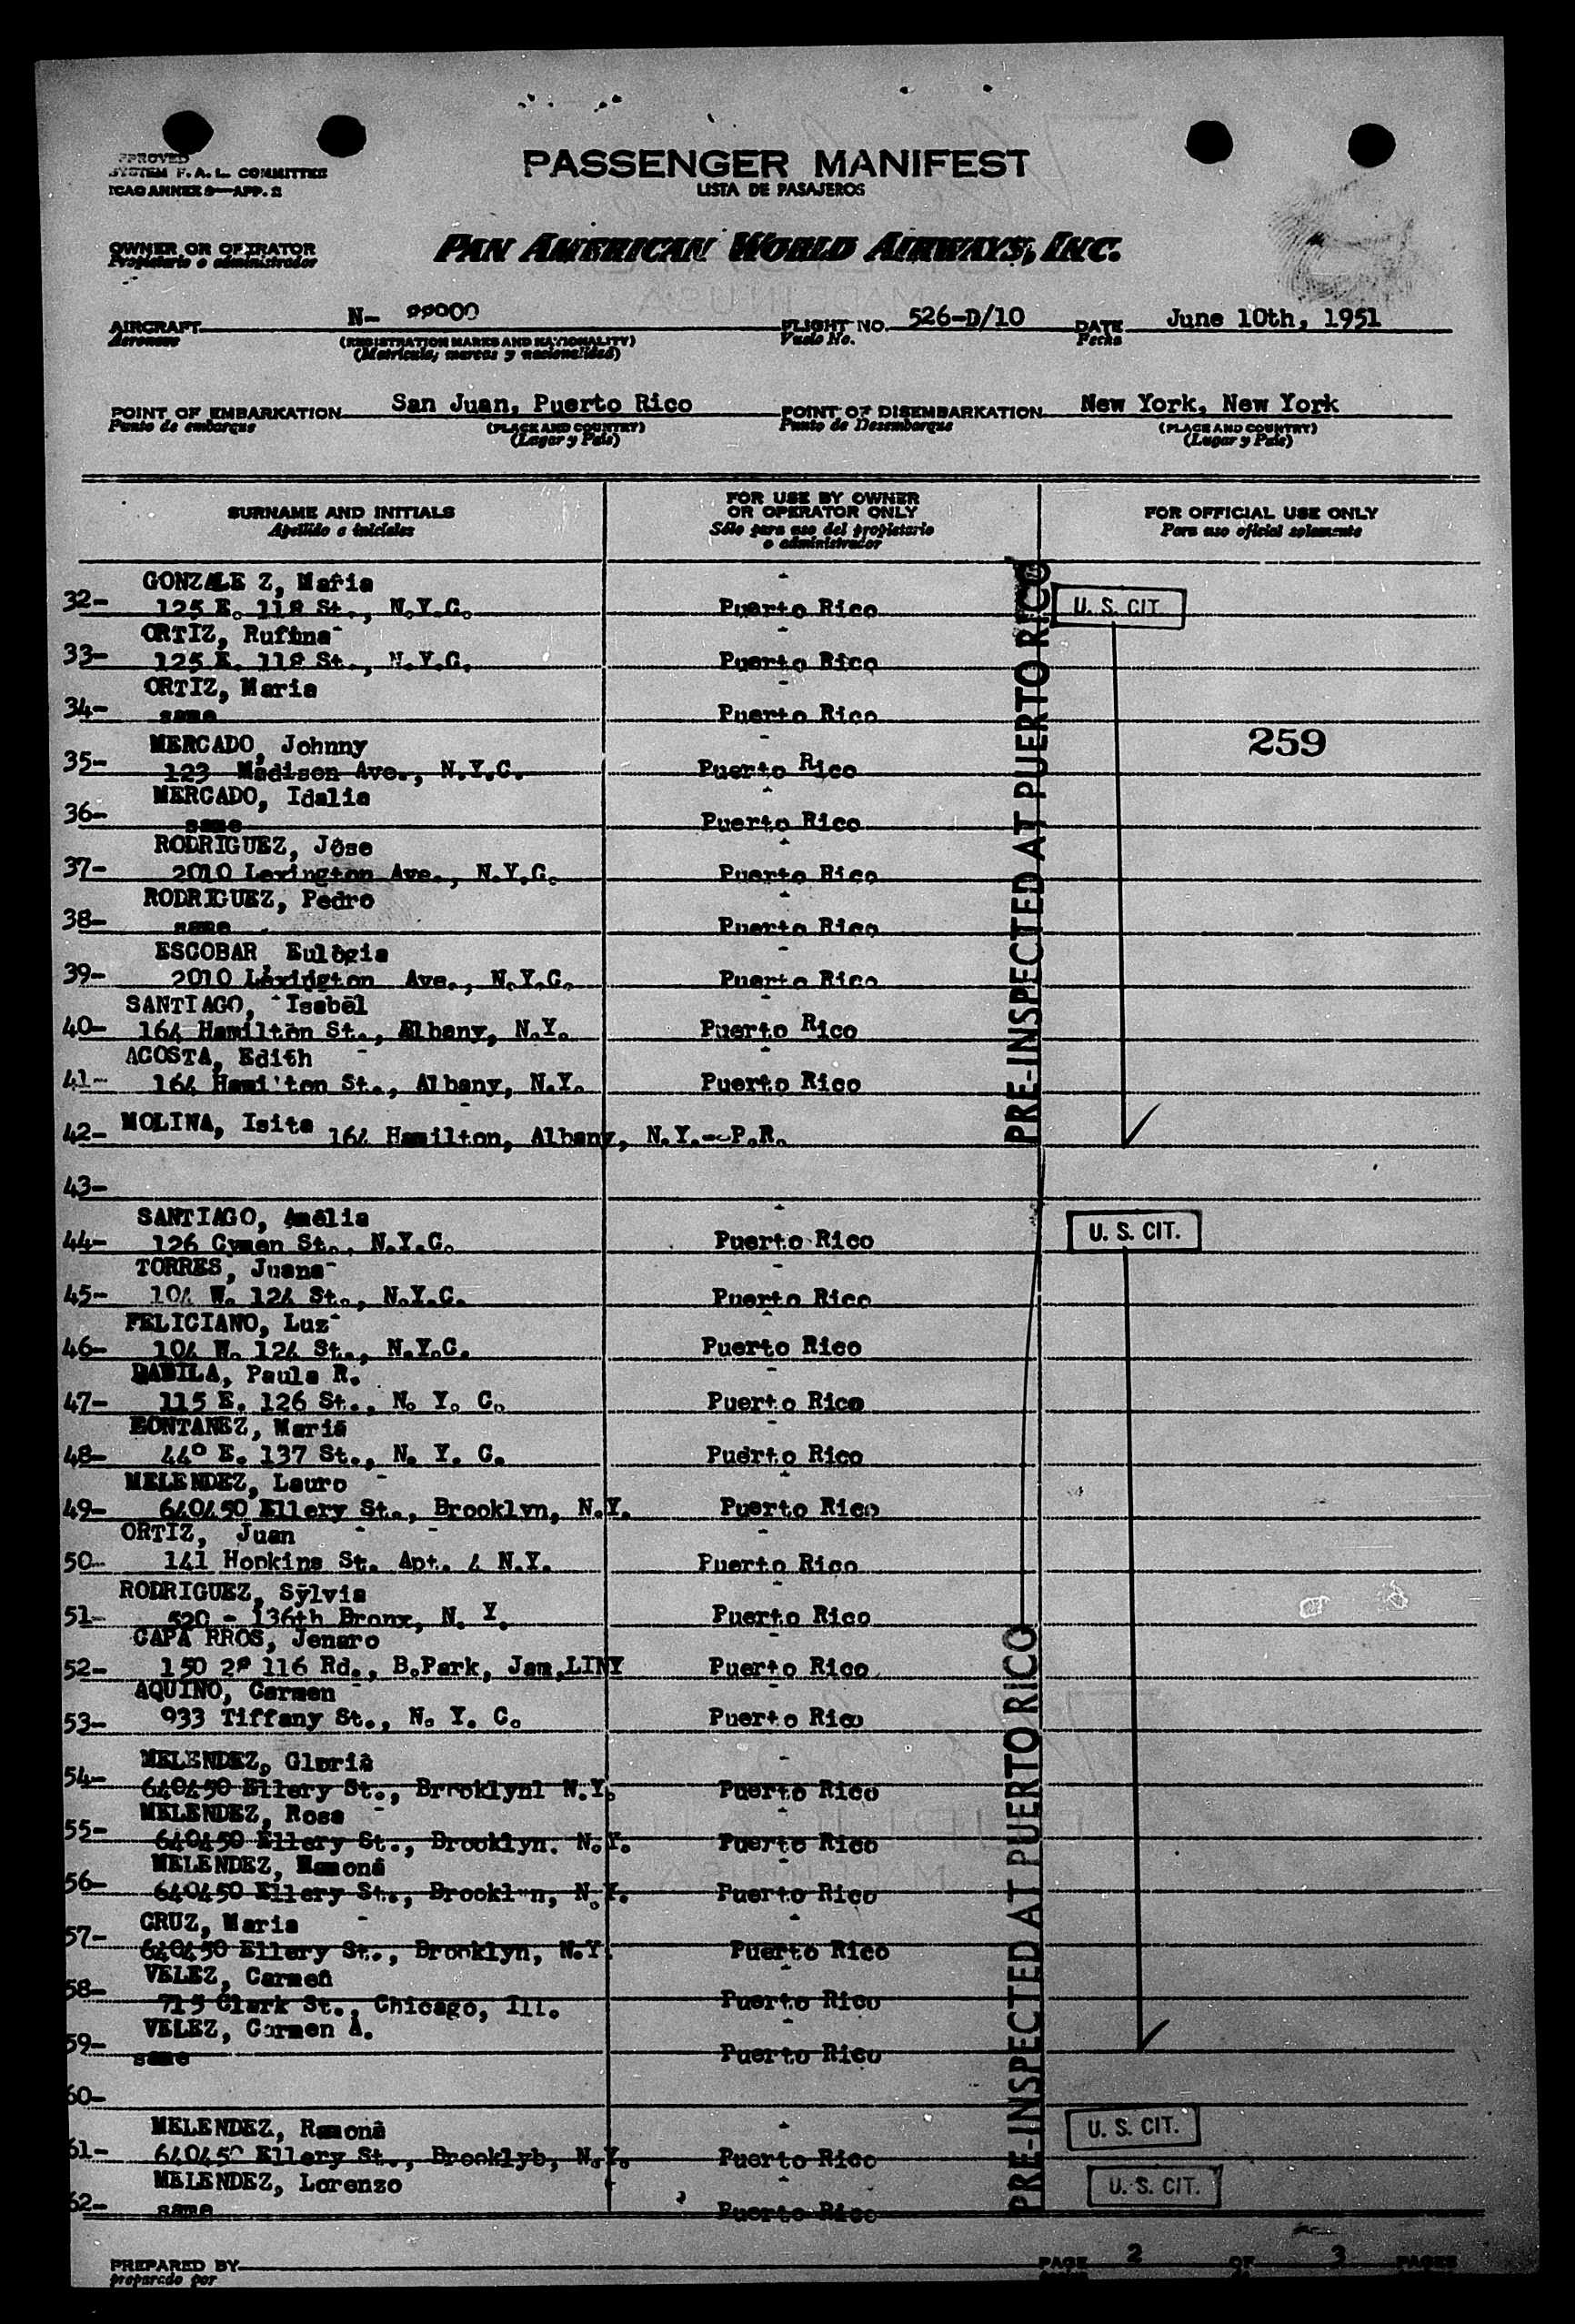 APPROVED
SYSTEM F. A. L. COMMITTEE
ICAO ANNEX 9—APP. 2
PASSENGER MANIFEST
LISTA DE PASAJEROS
OWNER OR OPERATOR
Propietario o administrador
PAN AMERICAN WORLD AIRWAYS, INC.
AIRCRAFT N- 99000 FLIGHT NO. 526-D/10 DATE June 10th, 1951
Aeronave (REGISTRATION MARKS AND NATIONALITY) Vuelo No. Fecha
(Matricula, marcas y nacionalidad)
POINT OF EMBARKATION San Juan, Puerto Rico POINT OF DISEMBARKATION New York, New York
Punto de embarque (PLACE AND COUNTRY) Punto de Desembarque (PLACE AND COUNTRY)
(Lugar y País) (Lugar y País)
SURNAME AND INITIALS FOR USE BY OWNER OR OPERATOR ONLY FOR OFFICIAL USE ONLY
Apellido e iniciales Sólo para uso del propietario o administrador Para uso oficial solamente
GONZALE Z, Maria
32- 125 E. 118 St., N.Y.C. Puerto Rico U. S. CIT.
ORTIZ, Rufina
33- 125 E. 118 St., N.Y.C. Puerto Rico
ORTIZ, Maria
34- same Puerto Rico
259
MERCADO, Johnny
35- 123 Madison Ave., N.Y.C. Puerto Rico
MERCADO, Idalia
36- same Puerto Rico
RODRIGUEZ, Jose
37- 2010 Lexington Ave., N.Y.C. Puerto Rico
RODRIGUEZ, Pedro
38- same Puerto Rico
ESCOBAR, Eulogia
39- 2010 Lexington Ave., N.Y.C. Puerto Rico
SANTIAGO, Isabel
40- 164 Hamilton St., Albany, N.Y. Puerto Rico
ACOSTA, Edith
41- 164 Hami'ton St., Albany, N.Y. Puerto Rico
42- MOLINA, Isita 164 Hamilton, Albany, N.Y.--P.R.
PRE-INSPECTED AT PUERTO RICO
43-
SANTIAGO, Amelia
44- 126 St., N.Y.C. Puerto Rico U. S. CIT.
TORRES, Juana
45- 104 W. 124 St., N.Y.C. Puerto Rico
FELICIANO, Luz
46- 104 W. 124 St., N.Y.C. Puerto Rico
DABILA, Paula R.
47- 115 E. 126 St., N. Y. C. Puerto Rico
BONTANEZ, Maria
48- 440 E. 137 St., N. Y. C. Puerto Rico
MELENDEZ, Lauro
49- 640450 Ellery St., Brooklyn, N.Y. Puerto Rico
ORTIZ, Juan
50- 141 Hopkins St. Apt. 4 N.Y. Puerto Rico
RODRIGUEZ, Sylvia
51- 520 - 136th Bronx, N. Y. Puerto Rico
CAPA RROS, Jenaro
52- 150 28 116 Rd., B.Park, Jam,LINY Puerto Rico
AQUINO, Carmen
53- 933 Tiffany St., N. Y. C. Puerto Rico
MELENDEZ, Gloria
54- 640450 Ellery St., Brroklynl N.Y. Puerto Rico
MELENDEZ, Rosa
55- 640450 Ellery St., Brooklyn. N.Y. Puerto Rico
MELENDEZ, Ramona
56- 640450 Ellery St., Brooklyn, N.Y. Puerto Rico
CRUZ, Maria
57- 640450 Ellery St., Brooklyn, N.Y. Puerto Rico
VELEZ, Carmen
58- 715 Clark St., Chicago, Ill. Puerto Rico
VELEZ, Carmen A.
59- same Puerto Rico
60-
MELENDEZ, Ramona
61- 640450 Ellery St., Brooklyb, N.Y. Puerto Rico U. S. CIT.
MELENDEZ, Lorenzo
62- same Puerto Rico U. S. CIT.
PRE-INSPECTED AT PUERTO RICO
PREPARED BY PAGE 2 OF 3 PAGES
preparado por